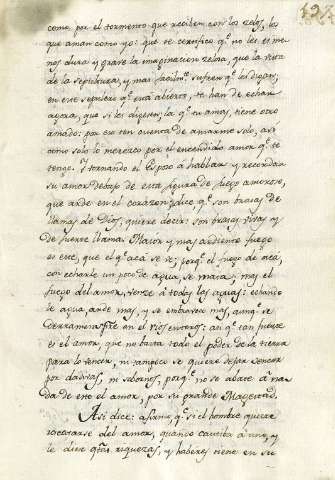 como por el tormento que reciben con los zelos, los
que aman como yo: que te certifico q.e no les es me
nos dura y grave la imaginacion zelosa, que la vista
de la sepultura, y mas facilm.te sufren q.e les digan;
en este sepulcro q.e está abierto te han de echar
agora, que si les dijesen; la q.e tu amas, tiene otro
amado: por eso ten cuenta de amarme solo, asi
como solo lo merezco por el encendido amor q.e te
tengo. Y tornando el Esposo á hablar y recordar
su amor debajo de esta figura de fuego amoroso,
que arde en el corazon, dice q.e son brasas de
llamas de Dios, quiere decir: son brasas vivas y
de fuerte llama. Maior y mas ardiente fuego
es este, que el q.e acá se vé; porq.e el fuego de acá,
con echarle un poco de agua, se mata; mas el
fuego del amor, vence á todas las aguas: echando
le agua, arde mas, y se embravece mas, aunq.e se
derramasen en él rios enteros: asi q.e tan fuerte
es el amor, que no basta todo el poder de la tierra
para lo vencer, ni tampoco se quiere dejar vencer
por dadivas, ni sobornos; porq.e no se abate á na
da de eso el amor, por su grande Magestad.
Asi dice: afirma q.e si el hombre quiere
rescatarse del amor, quando cautiba á uno, y
le diere q.tas riquezas, y haberes tiene en su